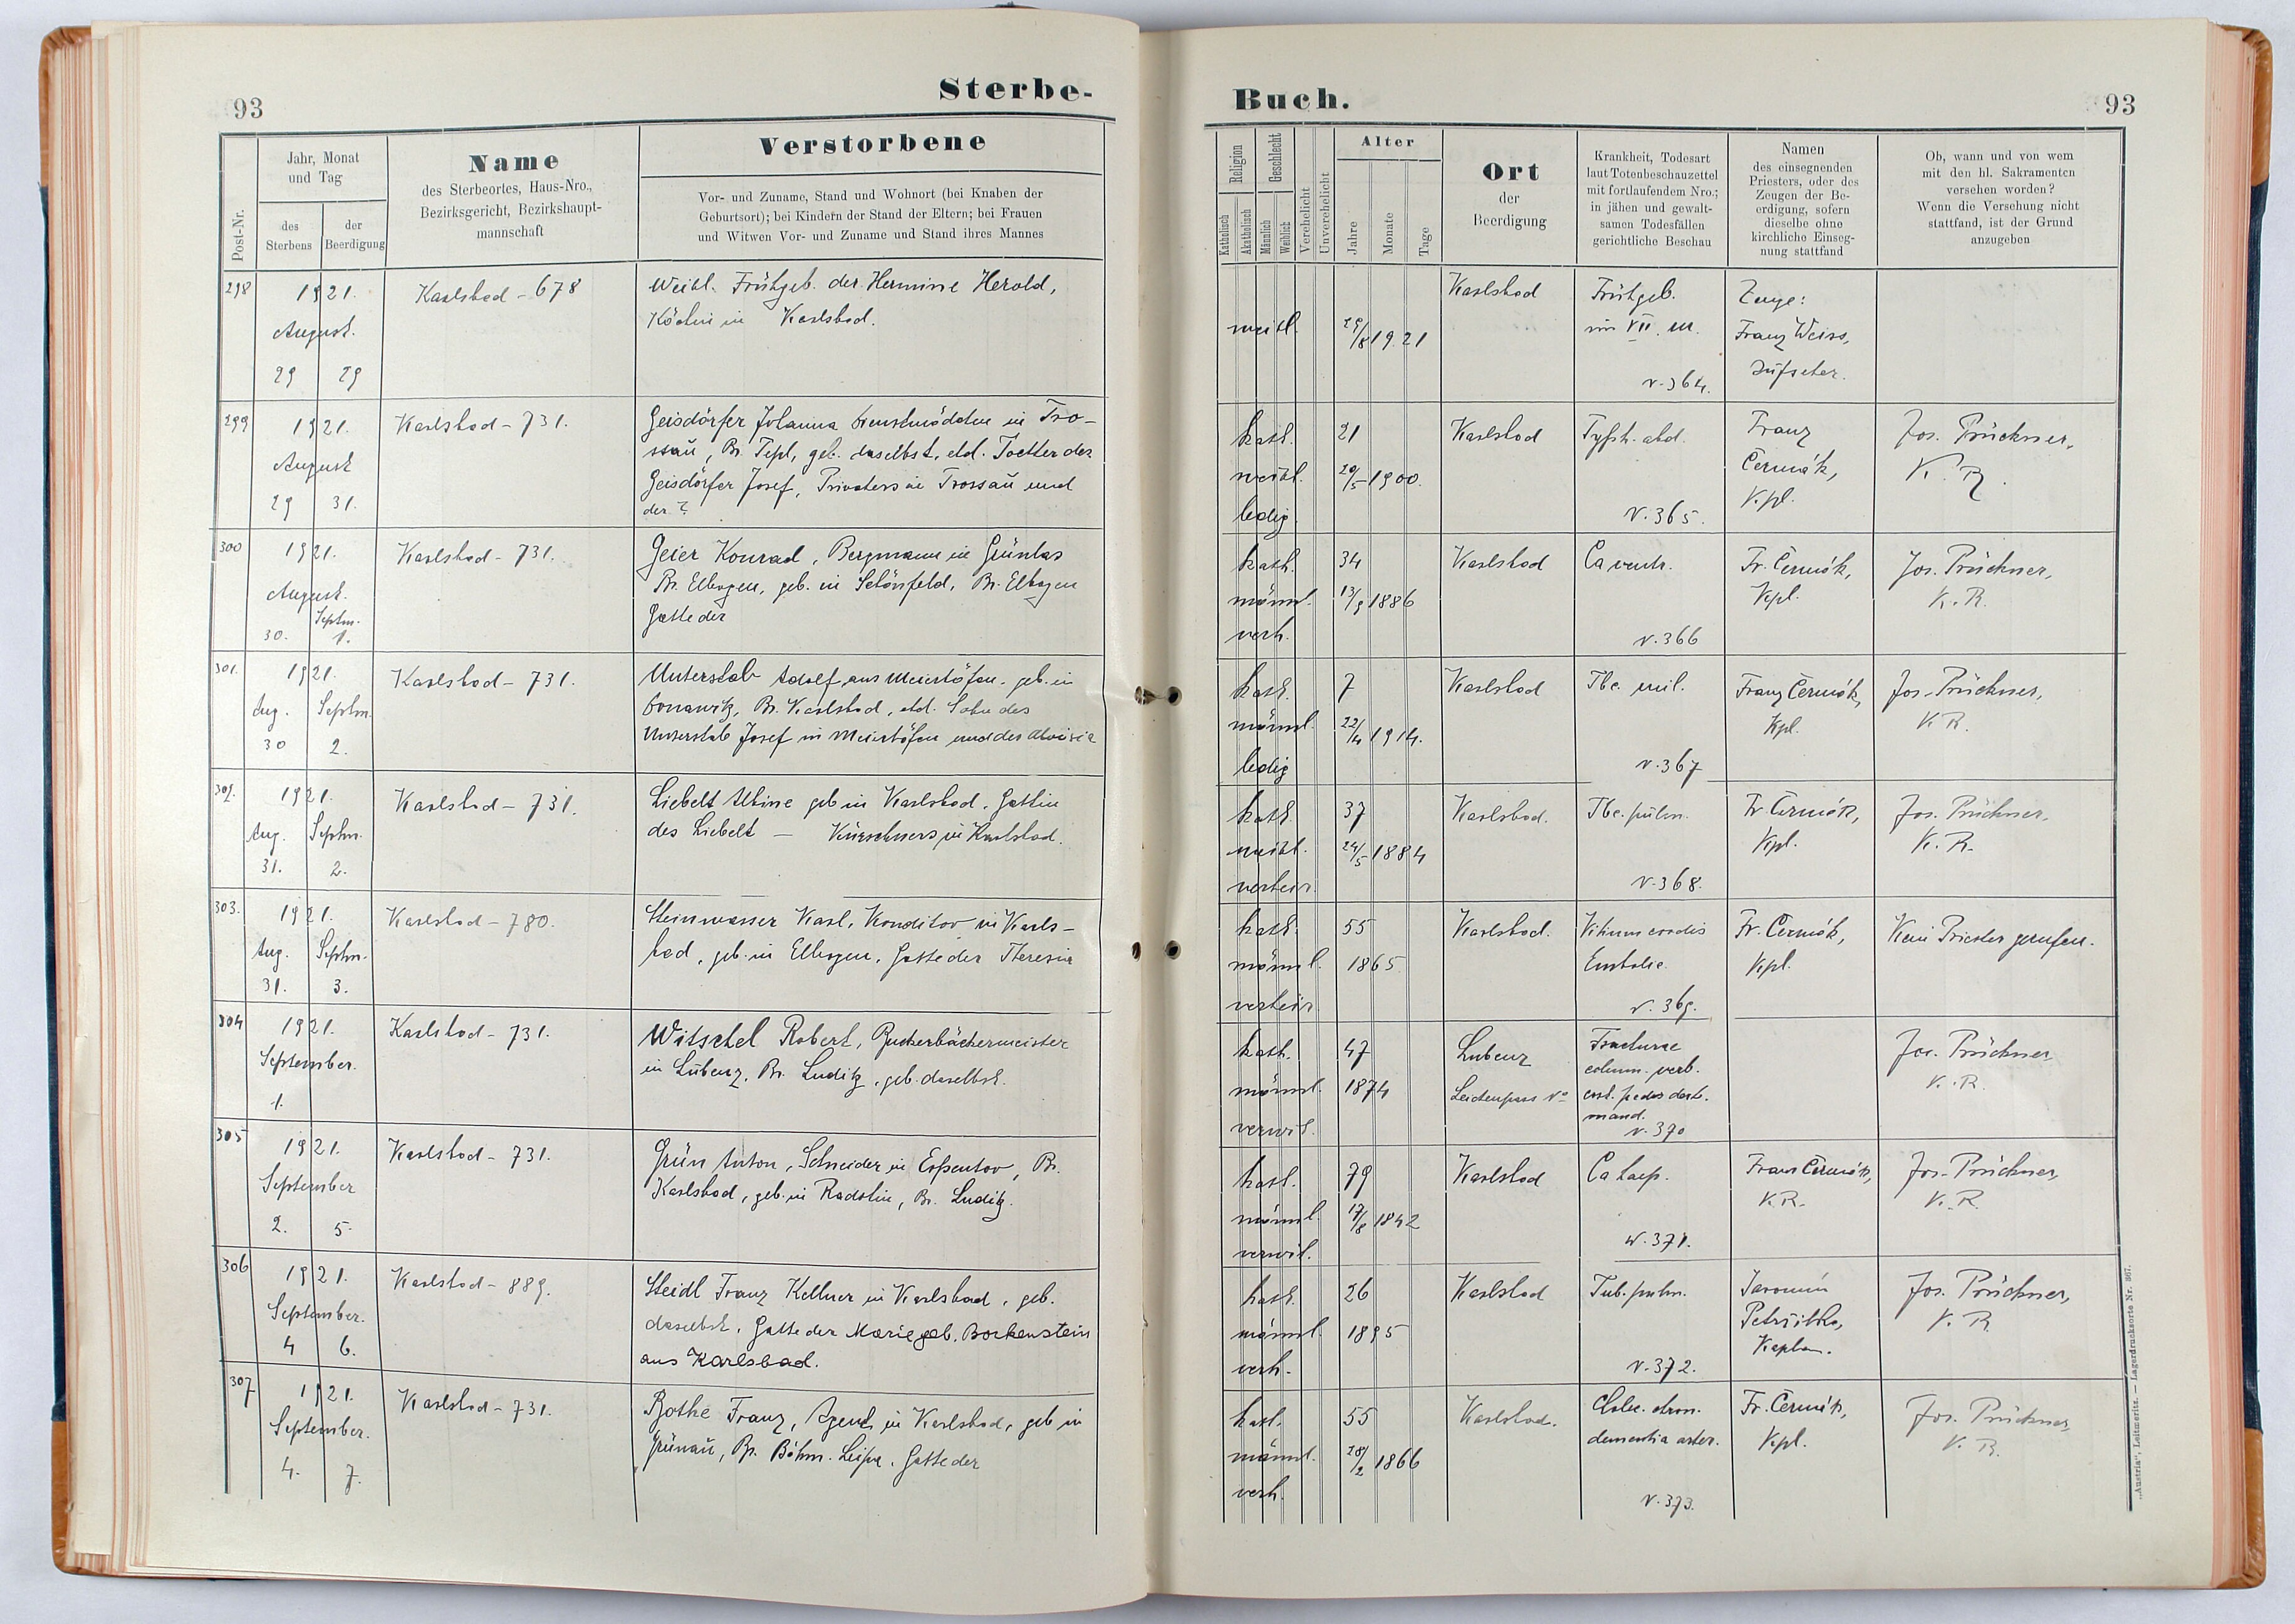 93
Sterbe-
Post-Nr.
Jahr, Monat
und Tag
des
Sterbens
der
Beerdigung
Name
des Sterbeortes, Haus-Nro.,
Bezirksgericht, Bezirkshaupt-
mannschaft
Verstorbene
Vor- und Zuname, Stand und Wohnort (bei Knaben der
Geburtsort); bei Kindern der Stand der Eltern; bei Frauen
und Witwen Vor- und Zuname und Stand ihres Mannes
298
1921.
August.
29 29
Karlsbad - 678
Weibl. Frühgeb. der Hermine Herold,
Köchin in Karlsbad.
299
1921.
August
29 31.
Karlsbad - 731.
Geisdörfer Johanna Dienstmädchen in Tro-
ssau, Bz. Tepl, geb. daselbst, ehl. Tochter des
Geisdörfer Josef, Privatiers in Trossau und
der ?
300
1921.
August. Septm.
30. 1.
Karlsbad - 731.
Geier Konrad, Bergmann in Grünlas
Bz. Elbogen, geb. in Schönfeld, Bz. Elbogen
Gatte der
301.
1921.
Aug. Septm.
30 2.
Karlsbad - 731.
Unterstab Adolf aus Meierhöfen, geb. in
Donawitz, Bz. Karlsbad, ehl. Sohn des
Unterstab Josef in Meierhöfen und der Aloisia
302.
1921.
Aug. Septm.
31. 2.
Karlsbad - 731.
Liebelt Albine geb in Karlsbad, Gattin
des Liebelt — Kürschners in Karlsbad.
303.
1921.
Aug. Septm.
31. 3.
Karlsbad - 780.
Steinwasser Karl, Konditor in Karls-
bad, geb. in Elbogen, Gatte der Theresia
304
1921.
September.
1.
Karlsbad - 731.
Witschel Robert, Zuckerbäckermeister
in Lubenz, Bz. Luditz, geb. daselbst.
305
1921.
September
2. 5.
Karlsbad - 731.
Grün Anton, Schneider in Espentor, Bz.
Karlsbad, geb. in Radotin, Bz. Luditz.
306
1921.
September.
4 6.
Karlsbad - 889.
Steidl Franz Kellner in Karlsbad, geb.
daselbst, Gatte der Marie geb. Borkenstein
aus Karlsbad.
307
1921.
September.
4. 7.
Karlsbad - 731.
Bothe Franz, Agent in Karlsbad, geb in
Grünau, Bz. Böhm. Leipa, Gatte der
Buch.
93
Religion
Katholisch
Akatholisch
Geschlecht
Männlich
Weiblich
Verehelicht
Unverehelicht
Alter
Jahre
Monate
Tage
Ort
der
Beerdigung
Krankheit, Todesart
laut Totenbeschauzettel
mit fortlaufendem Nro.;
in jähen und gewalt-
samen Todesfällen
gerichtliche Beschau
Namen
des einsegnenden
Priesters, oder des
Zeugen der Be-
erdigung, sofern
dieselbe ohne
kirchliche Einseg-
nung stattfand
Ob, wann und von wem
mit den hl. Sakramenten
versehen worden?
Wenn die Versehung nicht
stattfand, ist der Grund
anzugeben
weibl.
29/8 1921
Karlsbad
Frühgeb.
im VII. M.
N. 364.
Zeuge:
Franz Weiss,
Aufseher.
kath.
weibl.
ledig
21
20/5 1900.
Karlsbad
Typh. abd.
N. 365.
Franz
Čermák,
Kpl.
Jos. Prückner,
K. R.
kath.
männl.
verh.
34
13/9 1886
Karlsbad
Ca ventr.
N. 366
Fr. Čermák,
Kpl.
Jos. Prückner,
K. R.
kath.
männl.
ledig
7
22/4 1914.
Karlsbad
Tbc. mil.
N. 367
Franz Čermák,
Kpl.
Jos. Prückner,
K. R.
kath.
weibl.
verheir.
37
24/5 1884
Karlsbad.
Tbc. pulm.
N. 368.
Fr. Čermák,
Kpl.
Jos. Prückner,
K. R.
kath.
männl.
verheir.
55
1865.
Karlsbad.
Vitium cordis
Embolie.
N. 369.
Fr. Čermák,
Kpl.
Kein Priester gerufen.
kath.
männl.
verwit.
47
1874
Lubenz
Leichenpass No
Fracturae
column. verb.
N. 370
Jos. Prückner
K. R.
kath.
männl.
verwit.
79
17/8 1842
Karlsbad
Ca
N. 371.
Franz Čermák,
K. R.
Jos. Prückner,
K. R.
kath.
männl.
verh.
26
1895
Karlsbad
Tub. pulm.
N. 372.
Jaromir
Kaplan.
Jos. Prückner,
K. R.
kath.
männl.
verh.
55
28/2 1866
Karlsbad.
chron.
dementia arter.
N. 373.
Fr. Čermák,
Kpl.
Jos. Prückner,
K. R.
„Austria", Leitmeritz. — Lagerdrucksorte Nr. 867.